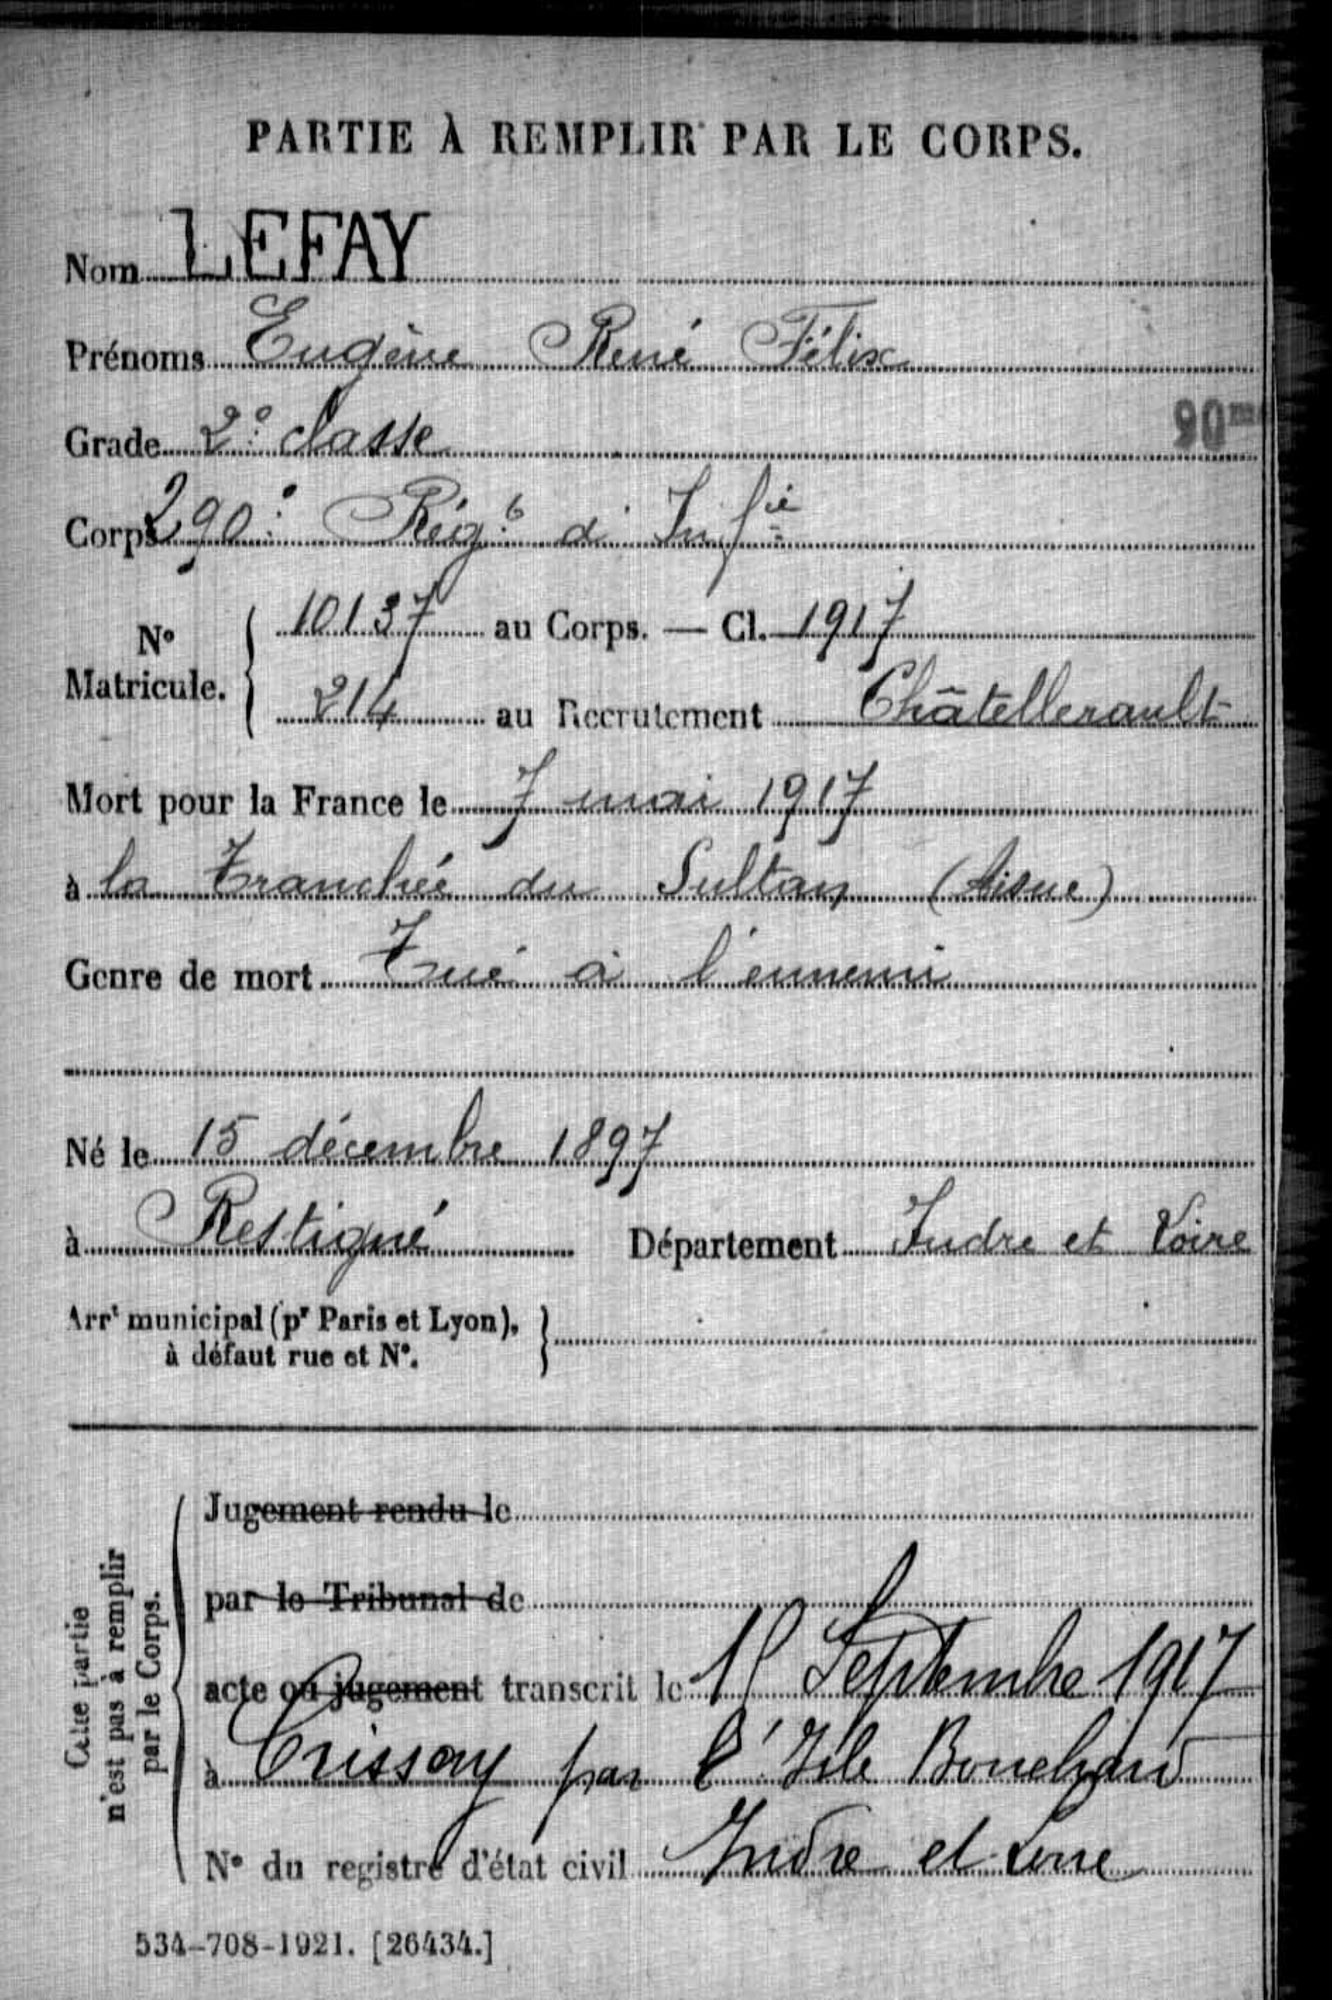 PARTIE À REMPLIR PAR LE CORPS.
Nom LEFAY
Prénoms Eugène René Félix
Grade 2e classe
90me
Corps 290e Régt d'Infie
No Matricule. 10137 au Corps. — Cl. 1917
214 au Recrutement Châtellerault
Mort pour la France le 7 mai 1917
à la Tranchée du Sultan (Aisne)
Genre de mort Tué à l'ennemi
Né le 15 décembre 1897
à Restigné Département Indre et Loire
Arrt municipal (pr Paris et Lyon),
à défaut rue et No.
Cette partie
n'est pas à remplir
par le Corps.
Jugement rendu le
par le Tribunal de
acte ou jugement transcrit le Septembre 1917
à Crissay par l'Isle Bouchard
No du registre d'état civil Indre et Loire
534-708-1921. [26434.]